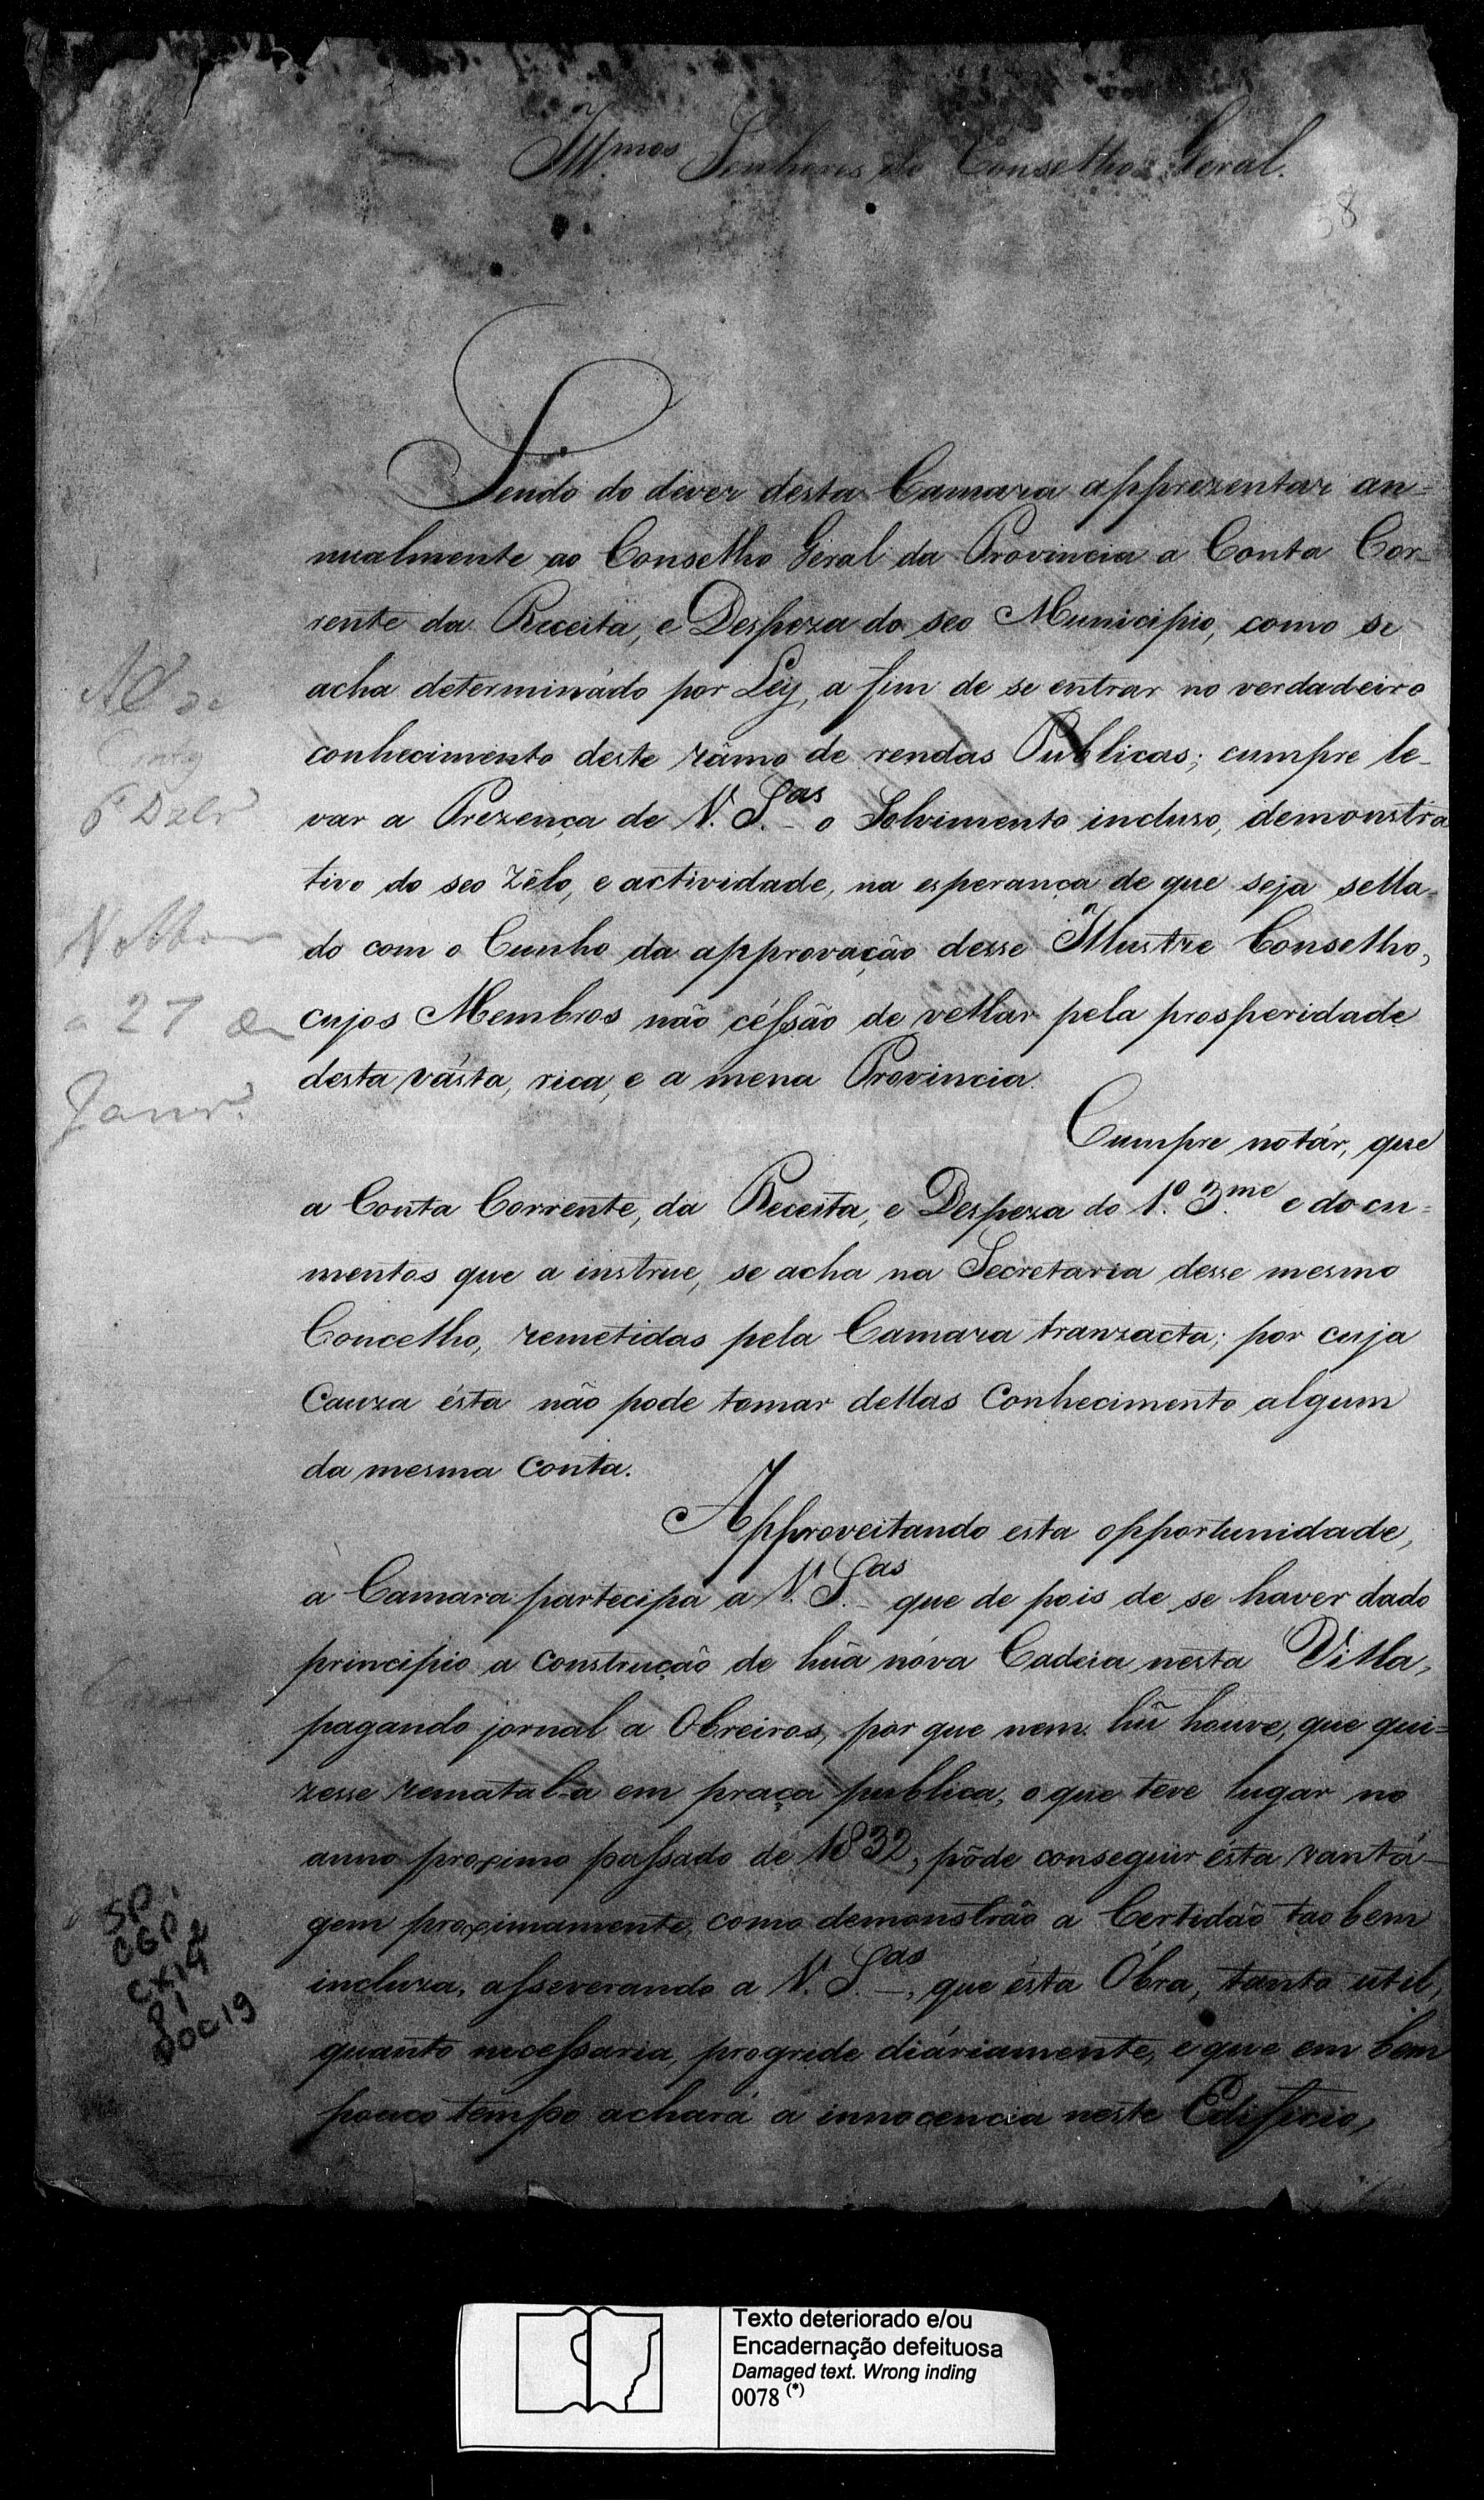 Ill.mos Senhores do Conselho Geral.
58
Sendo do dever desta Camara apprezentar an=
nualmente ao Conselho Geral da Provincia a Conta Cor-
rente da Receita, e Despeza do seo Municipio, como se
acha determinádo por Ley, a fim de se entrar no verdadeiro
conhecimento deste râmo de rendas Publicas; cumpre le-
var a Prezença de V. S.as o Solvimento incluso, demonstra
tivo do seo Zêlo, e actividade, na esperança de que seja sella=
do com o Cunho da approvação desse Illustre Conselho,
cujos Membros não céssão de vellar pela prosperidade
desta vásta, rica, e a mena Provincia.
Cumpre notár, que
a Conta Corrente, da Receita, e Despeza do 1.º 3.me e docu=
mentos que a instrue, se acha na Secretaria desse mesmo
Concelho, remetidas pela Camara tranzacta; por cuja
Cauza ésta não pode tomar dellas Conhecimento algum
da mesma Conta.
Approveitando esta opportunidade,
a Camara partecipa a V. S.as que de pois de se haver dado
principio a Construção de hũa nóva Cadeia nesta Villa,
pagando jornal a Obreiros, por que nem hũ houve, que qui=
zesse rematal-a em praça publica, o que teve lugar no
anno proximo passado de 1832, pôde conseguir ésta vantá-
gem proximamente, como demonstrão a Certidão tao bem
incluza, asseverando a V. S.as, que ésta Óbra, tanto util,
quanto necessaria, progride diáriamente, e que em bem
pouco tempo achará a innocencia neste Edificio,
a 27 de
Janr.º
SP.
CGP2
CX14
P1
DOC19
Texto deteriorado e/ou
Encadernação defeituosa
Damaged text. Wrong inding
0078 (*)